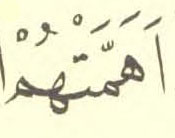 اَهَمَّتْهُمْ